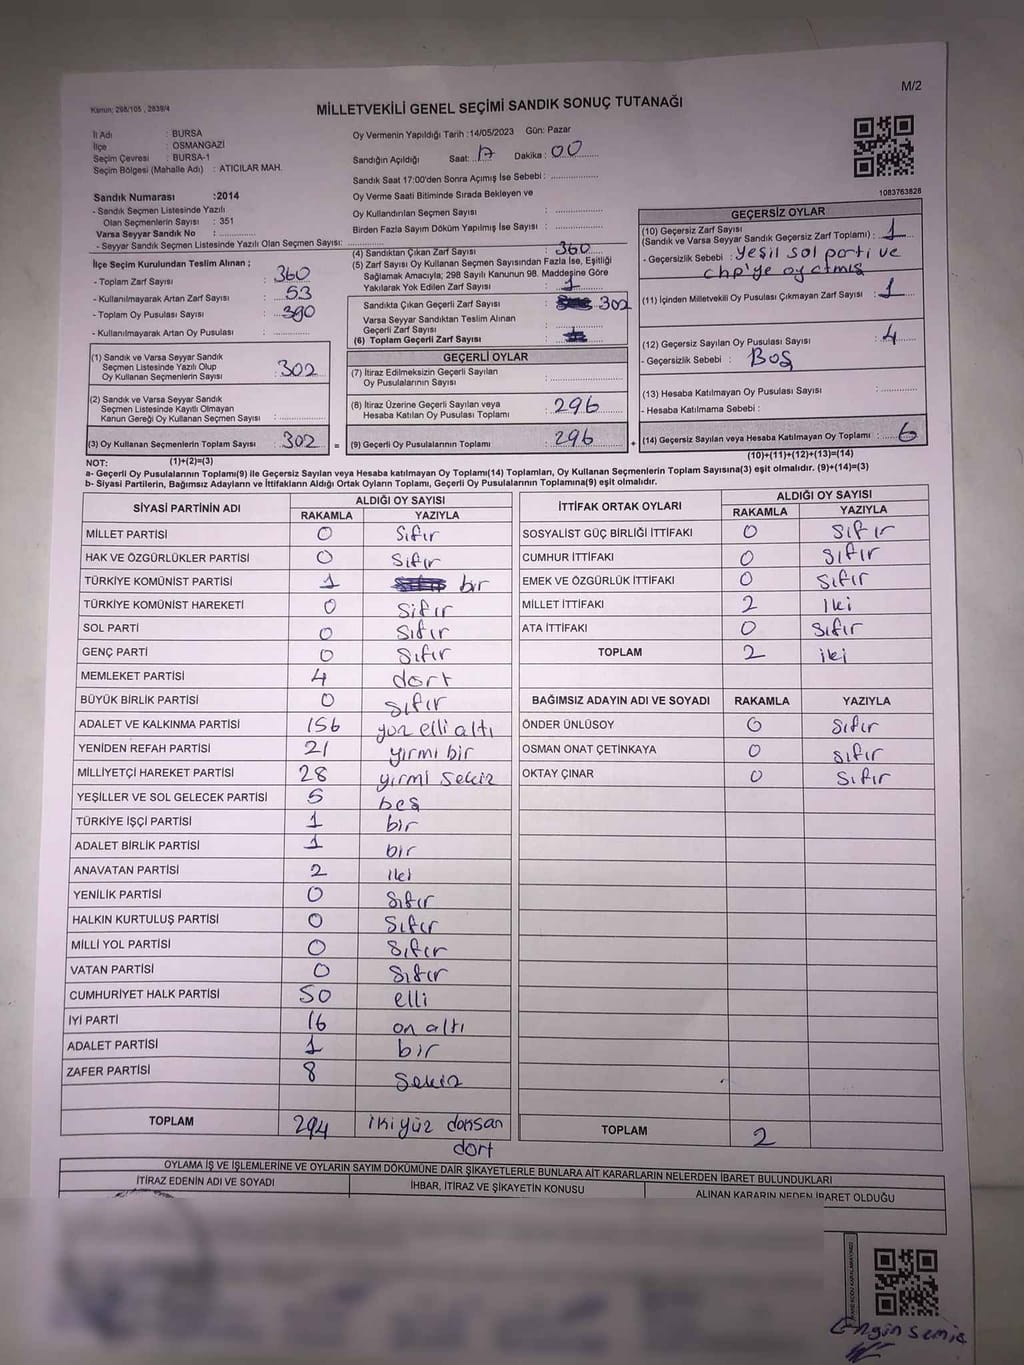 M/2
Kanun: 298/105 , 2839/4
MİLLETVEKİLİ GENEL SEÇİMİ SANDIK SONUÇ TUTANAĞI
İl Adı : BURSA
İlçe : OSMANGAZİ
Seçim Çevresi : BURSA-1
Seçim Bölgesi (Mahalle Adı) : ATICILAR MAH.
Oy Vermenin Yapıldığı Tarih :14/05/2023 Gün: Pazar
Sandığın Açıldığı Saat: 17 Dakika : 00
Sandık Saat 17:00'den Sonra Açımış İse Sebebi :
Oy Verme Saati Bitiminde Sırada Bekleyen ve
Oy Kullandırılan Seçmen Sayısı :
Birden Fazla Sayım Döküm Yapılmış İse Sayısı :
1083763828
Sandık Numarası :2014
- Sandık Seçmen Listesinde Yazılı
Olan Seçmenlerin Sayısı : 351
Varsa Seyyar Sandık No :
- Seyyar Sandık Seçmen Listesinde Yazılı Olan Seçmen Sayısı:
İlçe Seçim Kurulundan Teslim Alınan ;
- Toplam Zarf Sayısı : 360
- Kullanılmayarak Artan Zarf Sayısı : 53
- Toplam Oy Pusulası Sayısı : 390
- Kullanılmayarak Artan Oy Pusulası :
(1) Sandık ve Varsa Seyyar Sandık
Seçmen Listesinde Yazılı Olup
Oy Kullanan Seçmenlerin Sayısı : 302
(2) Sandık ve Varsa Seyyar Sandık
Seçmen Listesinde Kayıtlı Olmayan
Kanun Gereği Oy Kullanan Seçmen Sayısı :
(3) Oy Kullanan Seçmenlerin Toplam Sayısı : 302 =
(1)+(2)=(3)
(4) Sandıktan Çıkan Zarf Sayısı : 360
(5) Zarf Sayısı Oy Kullanan Seçmen Sayısından Fazla İse, Eşitliği
Sağlamak Amacıyla; 298 Sayılı Kanunun 98. Maddesine Göre
Yakılarak Yok Edilen Zarf Sayısı : 1
Sandıkta Çıkan Geçerli Zarf Sayısı : 302
Varsa Seyyar Sandıktan Teslim Alınan
Geçerli Zarf Sayısı :
(6) Toplam Geçerli Zarf Sayısı :
GEÇERLİ OYLAR
(7) İtiraz Edilmeksizin Geçerli Sayılan
Oy Pusulalarının Sayısı :
(8) İtiraz Üzerine Geçerli Sayılan veya
Hesaba Katılan Oy Pusulası Toplamı : 296
(9) Geçerli Oy Pusulalarının Toplamı : 296 +
GEÇERSİZ OYLAR
(10) Geçersiz Zarf Sayısı
(Sandık ve Varsa Seyyar Sandık Geçersiz Zarf Toplamı) : 1
- Geçersizlik Sebebi : Yeşil sol parti ve
chp'ye oy atmış
(11) İçinden Milletvekili Oy Pusulası Çıkmayan Zarf Sayısı : 1
(12) Geçersiz Sayılan Oy Pusulası Sayısı : 4
- Geçersizlik Sebebi : Boş
(13) Hesaba Katılmayan Oy Pusulası Sayısı :
- Hesaba Katılmama Sebebi :
(14) Geçersiz Sayılan veya Hesaba Katılmayan Oy Toplamı : 6
(10)+(11)+(12)+(13)=(14)
NOT:
a- Geçerli Oy Pusulalarının Toplamı(9) ile Geçersiz Sayılan veya Hesaba katılmayan Oy Toplamı(14) Toplamları, Oy Kullanan Seçmenlerin Toplam Sayısına(3) eşit olmalıdır. (9)+(14)=(3)
b- Siyasi Partilerin, Bağımsız Adayların ve İttifakların Aldığı Ortak Oyların Toplamı, Geçerli Oy Pusulalarının Toplamına(9) eşit olmalıdır.
SİYASİ PARTİNİN ADI ALDIĞI OY SAYISI
RAKAMLA YAZIYLA
MİLLET PARTİSİ 0 Sıfır
HAK VE ÖZGÜRLÜKLER PARTİSİ 0 Sıfır
TÜRKİYE KOMÜNİST PARTİSİ 1 bir
TÜRKİYE KOMÜNİST HAREKETİ 0 Sıfır
SOL PARTİ 0 Sıfır
GENÇ PARTİ 0 Sıfır
MEMLEKET PARTİSİ 4 dört
BÜYÜK BİRLİK PARTİSİ 0 sıfır
ADALET VE KALKINMA PARTİSİ 156 yüz elli altı
YENİDEN REFAH PARTİSİ 21 yirmi bir
MİLLİYETÇİ HAREKET PARTİSİ 28 yirmi sekiz
YEŞİLLER VE SOL GELECEK PARTİSİ 5 beş
TÜRKİYE İŞÇİ PARTİSİ 1 bir
ADALET BİRLİK PARTİSİ 1 bir
ANAVATAN PARTİSİ 2 iki
YENİLİK PARTİSİ 0 Sıfır
HALKIN KURTULUŞ PARTİSİ 0 Sıfır
MİLLİ YOL PARTİSİ 0 Sıfır
VATAN PARTİSİ 0 Sıfır
CUMHURİYET HALK PARTİSİ 50 elli
İYİ PARTİ 16 on altı
ADALET PARTİSİ 1 bir
ZAFER PARTİSİ 8 Sekiz
TOPLAM 294 ikiyüz doksan
dört
İTTİFAK ORTAK OYLARI ALDIĞI OY SAYISI
RAKAMLA YAZIYLA
SOSYALİST GÜÇ BİRLİĞİ İTTİFAKI 0 Sıfır
CUMHUR İTTİFAKI 0 Sıfır
EMEK VE ÖZGÜRLÜK İTTİFAKI 0 Sıfır
MİLLET İTTİFAKI 2 İki
ATA İTTİFAKI 0 Sıfır
TOPLAM 2 iki
BAĞIMSIZ ADAYIN ADI VE SOYADI RAKAMLA YAZIYLA
ÖNDER ÜNLÜSOY 0 Sıfır
OSMAN ONAT ÇETİNKAYA 0 sıfır
OKTAY ÇINAR 0 Sıfır
TOPLAM 2
OYLAMA İŞ VE İŞLEMLERİNE VE OYLARIN SAYIM DÖKÜMÜNE DAİR ŞİKAYETLERLE BUNLARA AİT KARARLARIN NELERDEN İBARET BULUNDUKLARI
İTİRAZ EDENİN ADI VE SOYADI İHBAR, İTİRAZ VE ŞİKAYETİN KONUSU ALINAN KARARIN NEDEN İBARET OLDUĞU
Engin